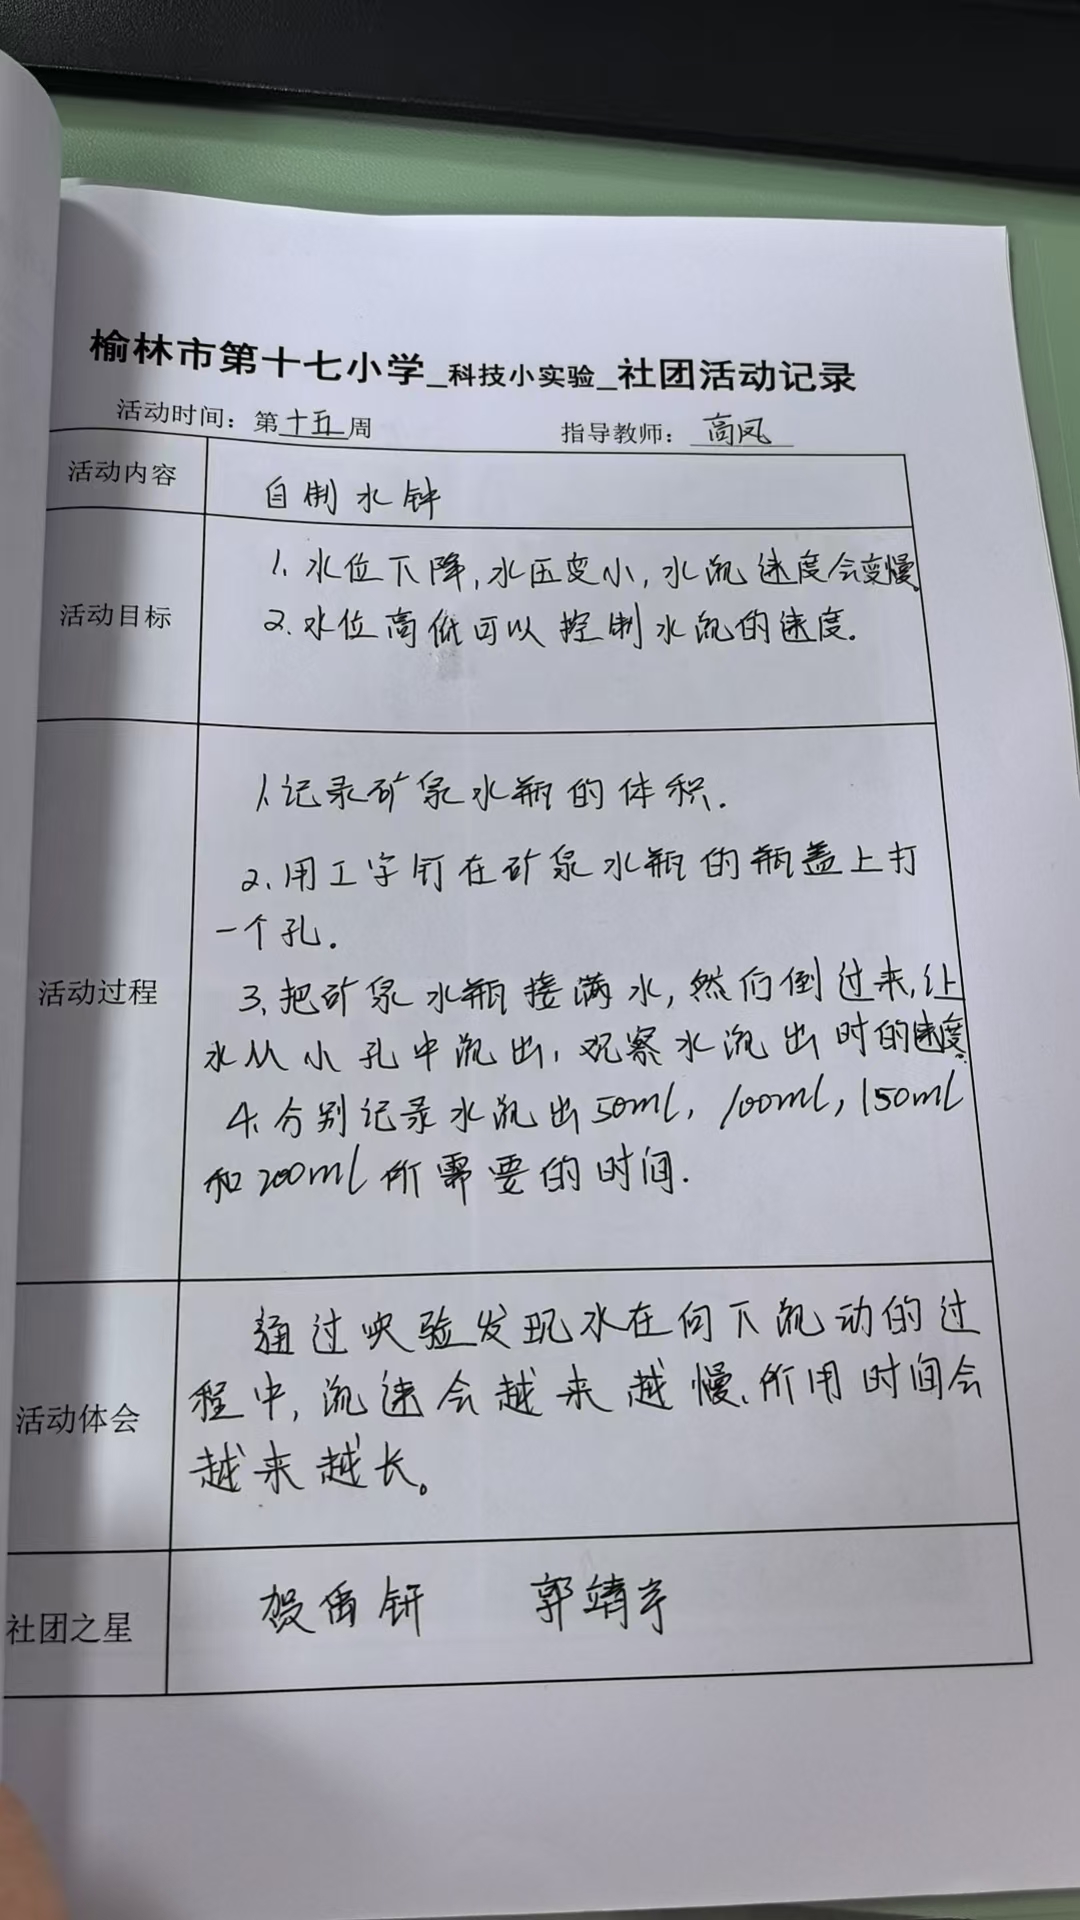 榆林市第十七小学_科技小实验_社团活动记录
活动时间：第十五周 指导教师：高凤
活动内容
自制水钟
活动目标
1、水位下降，水压变小，水流速度会变慢。
2、水位高低可以控制水流的速度.
活动过程
1、记录矿泉水瓶的体积.
2、用工字钉在矿泉水瓶的瓶盖上打
一个孔.
3、把矿泉水瓶接满水，然后倒过来，让
水从小孔中流出，观察水流出时的速度.
4、分别记录水流出50ml，100ml，150ml
和200ml所需要的时间.
活动体会
通过实验发现水在向下流动的过
程中，流速会越来越慢，所用时间会
越来越长。
社团之星
贺禹钘 郭靖宇